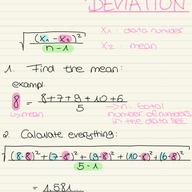 DEVIATION
√(x₁ - x₂)² / n - 1
x₁ = data number
x₂ = mean
1. Find the mean:
example:
8 = 8+7+9+10+6 / 5 → n, total
↳ mean number of numbers
in the data list
2. Calculate everything:
√(8-8)² + (7-8)² + (9-8)² + (10-8)² + (6-8)² / 5 - 1
= 1.581...